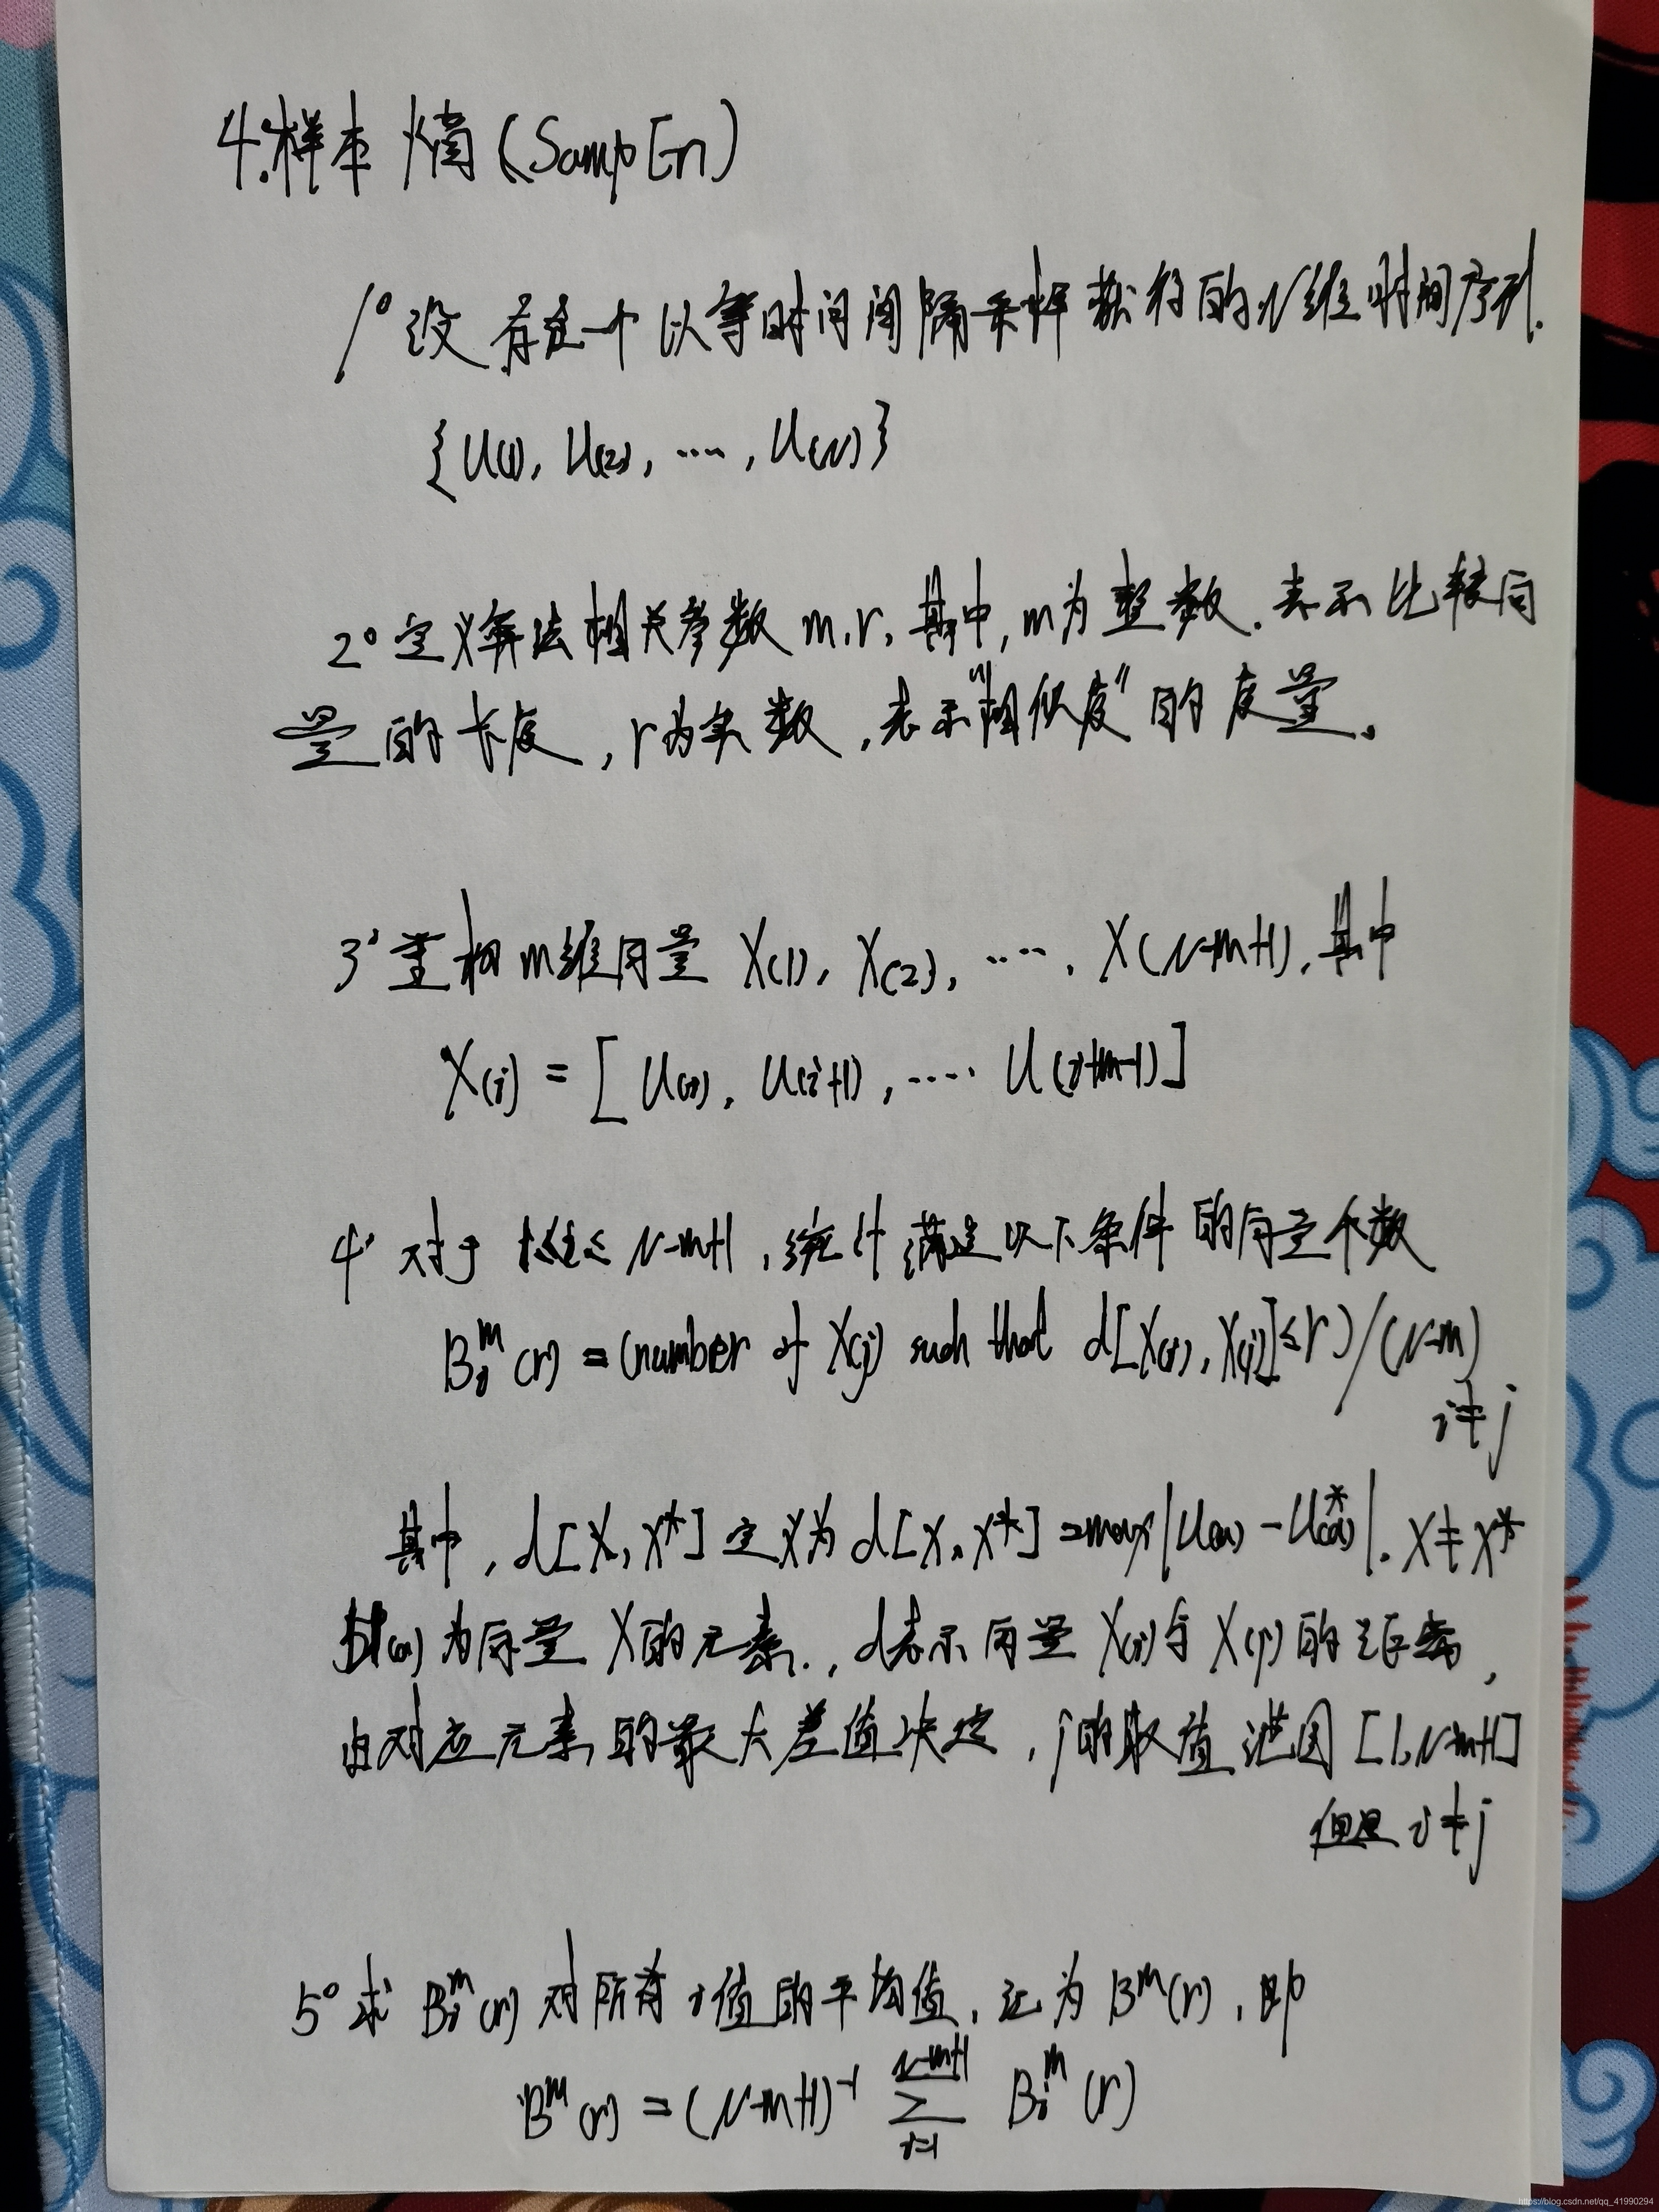 4.样本熵(SampEn)
1° 设存在一个以等时间间隔采样获得的N维时间序列.
{U(1), U(2), ····, U(N)}
2° 定义算法相关参数 m,r, 其中, m为整数, 表示比较向
量的长度, r为实数, 表示"相似度"的度量。
3° 重构m维向量 X(1), X(2), ····, X(N-m+1), 其中
X(i) = [U(i), U(i+1), ···· U(i+m-1)]
4° 对于 1≤i≤N-m+1, 统计满足以下条件的向量个数
Bᵢᵐ(r) = (number of X(j) such that d[X(i), X(j)]≤r)/(N-m)
i≠j
其中, d[X, X*] 定义为 d[X, X*] =max|U(a) - U*(a)|. X≠X*
U(a) 为向量 X的元素., d表示向量 X(i)与 X(j)的距离,
由对应元素的最大差值决定, j的取值范围 [1,N-m+1]
但是 i≠j
5° 求 Bᵢᵐ(r) 对所有i值的平均值, 记为 Bᵐ(r), 即
Bᵐ(r) = (N-m+1)⁻¹ ∑_{i=1}^{N-m+1} Bᵢᵐ(r)
https://blog.csdn.net/qq_41990294